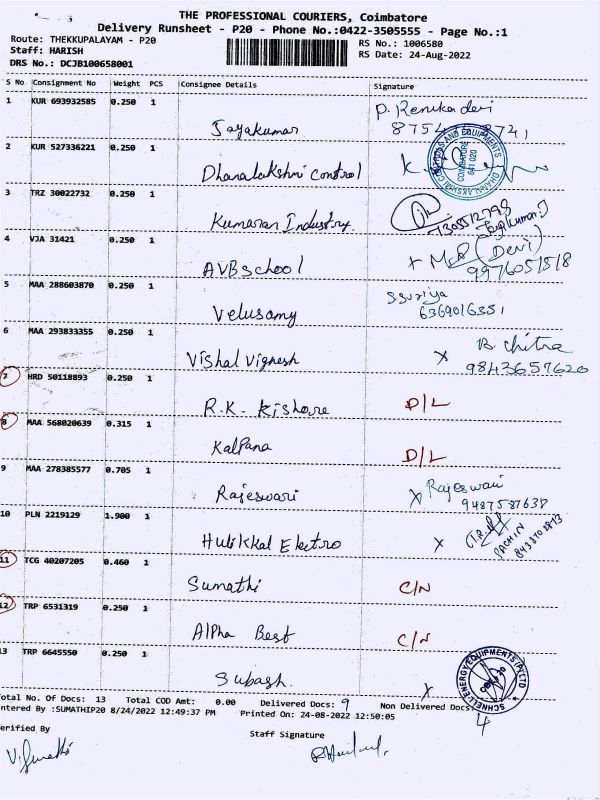 THE PROFESSIONAL COURIERS, Coimbatore
Delivery Runsheet - P20 - Phone No.:0422-3505555 - Page No.:1
Route: THEKKUPALAYAM - P20
RS No.: 1006580
Staff: HARISH
RS Date: 24-Aug-2022
DRS No.: DCJB100658001
S No Consignment No Weight PCS Consignee Details Signature
1 KUR 693932585 0.250 1 Jayakumar P. Renuka devi
2 KUR 527336221 0.250 1 Dhanalakshmi Control
3 TRZ 30022732 0.250 1 Kumaran Industry.
4 VJA 31421 0.250 1 AVB School (Devi) 9976051518
5 MAA 288603870 0.250 1 Velusamy Ssuriya 6369016351
6 MAA 293833355 0.250 1 Vishal Vignesh X B. Chitra 9843657620
7 HRD 50118893 0.250 1 R.K. Kishore D/L
8 MAA 568020639 0.315 1 Kalpana D/L
9 MAA 278385577 0.705 1 Rajeswari X Rajeswari
10 PLN 2219129 1.900 1 Hulikkal Electro X SACHIN
11 TCG 40207205 0.460 1 Sumathi C/N
12 TRP 6531319 0.250 1 Alpha Best C/N
13 TRP 6645550 0.250 1 Subash X SCHNELL ENERGY EQUIPMENTS (P) LTD
otal No. Of Docs: 13 Total COD Amt: 0.00 Delivered Docs: 9 Non Delivered Docs: 4
ntered By :SUMATHIP20 8/24/2022 12:49:37 PM Printed On: 24-08-2022 12:50:05
erified By
Staff Signature